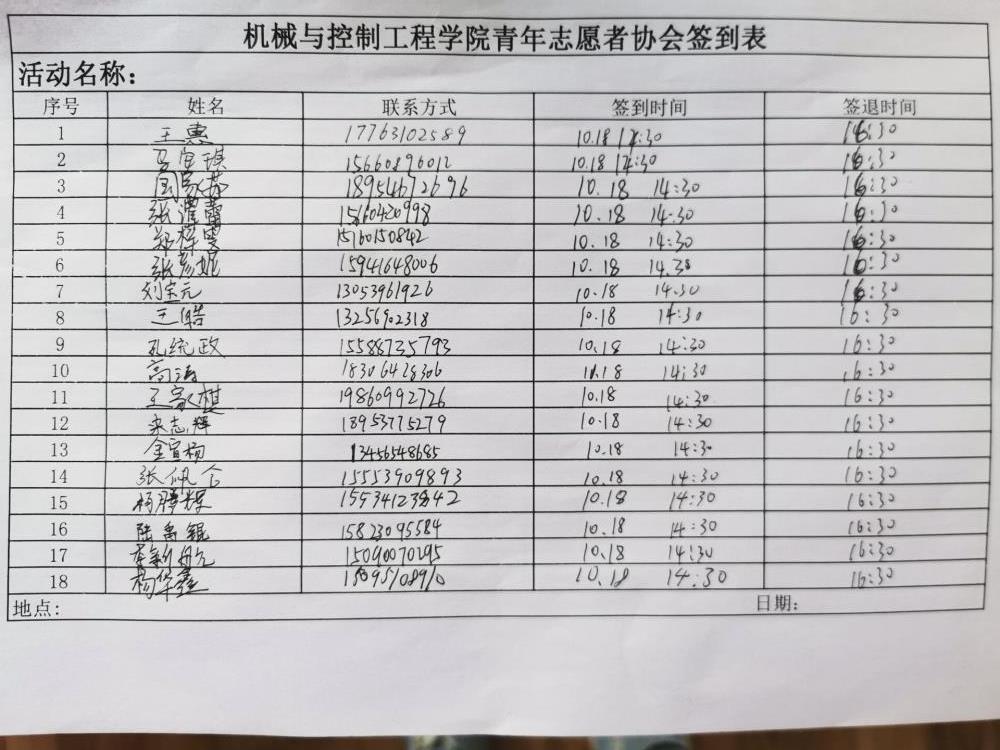 机械与控制工程学院青年志愿者协会签到表
活动名称:
序号 姓名 联系方式 签到时间 签退时间
1 王惠 17763102589 10.18 14:30 16:30
2 15660896012 10.18 14:30 16:30
3 18954672696 10.18 14:30 16:30
4 15660420998 10.18 14:30 16:30
5 15760150842 10.18 14:30 16:30
6 张彦妮 15941648006 10.18 14:30 16:30
7 刘宝元 13053961926 10.18 14:30 16:30
8 王皓 13256902318 10.18 14:30 16:30
9 孔统政 15588735793 10.18 14:30 16:30
10 高涛 18306428306 10.18 14:30 16:30
11 王家棋 19860992726 10.18 14:30 16:30
12 宋志辉 18953775279 10.18 14:30 16:30
13 金宣杨 13456548685 10.18 14:30 16:30
14 张佩 15553909893 10.18 14:30 16:30
15 杨腾辉 10.18 14:30 16:30
16 陆禹锟 15823095584 10.18 14:30 16:30
17 15090070295 10.18 14:30 16:30
18 杨华鑫 10.18 14:30 16:30
地点: 日期: